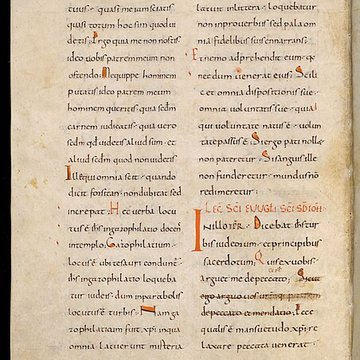 tuus· quasi me iam sciatis
quasi totum hoc sim quod ui
detis· Ergo quia me non nostis
ideo uobis patrem meum non
ostendo· Me quippe hominem
putatis ideo patrem meum
hominem queritis· quia sedm
carnem iudicatis· quia uero
sedm qd uidetis aliud sim· et
aliud sedm quod non uidetis
Ille qui omnia scit· quando
dicit forsitan· non dubitat sed
increpat· Haec uerba locu
tus est ihs in gazophilatio docens
in templo· Gazophilatium
locus est ubi thesauri condunt
ihs in gazophilatio loqueba
tur iudeis· dum in parabolis
locutus est turbis· Nam ga
zophilatium fuit xpi in qua
omnia latuerunt misteria
latuit in littera· loquebatur
non in prouerbiis sed pala om
nia fidelibus suis enarrans·
Et nemo adprehendit eum· q
necdum uenerat eius· Scili
cet omnia dispositionis suae
omnia uoluntatis suae· quia
qui uoluntate natus est· uolun
tate passus est· Si ergo pati nolle
non pateretur· Si sanguis ille
non funderetur· mundus no
redimeretur·
LEC SCI EUUGLI SCD IOH
IN ILLO TEMPR· Dicebat ihs tur
bis iudeorum· et principibus
sacerdotum· Quis ex uobis
arguet me de peccato·
ego arguo uos
de peccato· emendatio· Ecce
qualis est mansuetudo xpi· re
laxare peccata uenerat·